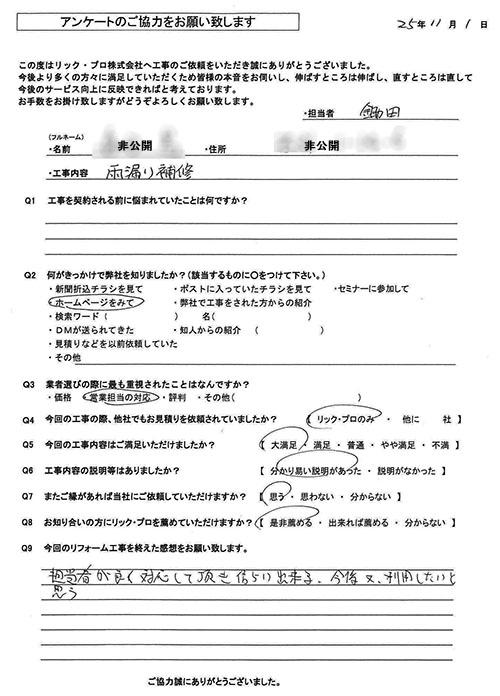 アンケートのご協力をお願い致します
25年11月1日
この度はリック・プロ株式会社へ工事のご依頼をいただき誠にありがとうございました。
今後より多くの方々に満足していただくため皆様の本音をお伺いし、伸ばすところは伸ばし、直すところは直して
今後のサービス向上に反映できればと考えております。
お手数をお掛け致しますがどうぞよろしくお願い致します。
・担当者 飯田
(フルネーム)
・名前 非公開 ・住所 非公開
・工事内容 雨漏り補修
Q1 工事を契約される前に悩まれていたことは何ですか?
Q2 何がきっかけで弊社を知りましたか?(該当するものに○をつけて下さい。)
・新聞折込チラシを見て ・ポストに入っていたチラシを見て ・セミナーに参加して
・ホームページをみて ・弊社で工事をされた方からの紹介
・検索ワード( ) 名( )
・DMが送られてきた ・知人からの紹介 ( )
・見積りなどを以前依頼していた
・その他
Q3 業者選びの際に最も重視されたことはなんですか?
・価格 ・営業担当の対応 ・評判 ・その他( )
Q4 今回の工事の際、他社でもお見積りを依頼されていましたか? 【 リック・プロのみ ・ 他に 社 】
Q5 今回の工事内容はご満足いただけましたか? 【 大満足 ・ 満足 ・ 普通 ・ やや満足 ・ 不満 】
Q6 工事内容の説明等はありましたか? 【 分かり易い説明があった ・ 説明がなかった 】
Q7 またご縁があれば当社にご依頼していただけますか? 【 思う ・ 思わない ・ 分からない 】
Q8 お知り合いの方にリック・プロを薦めていただけますか? 【 是非薦める ・ 出来れば薦める ・ 分からない 】
Q9 今回のリフォーム工事を終えた感想をお願い致します。
担当者が良く対応して頂き信らい出来る、今後又、利用したいと
思う
ご協力誠にありがとうございました。